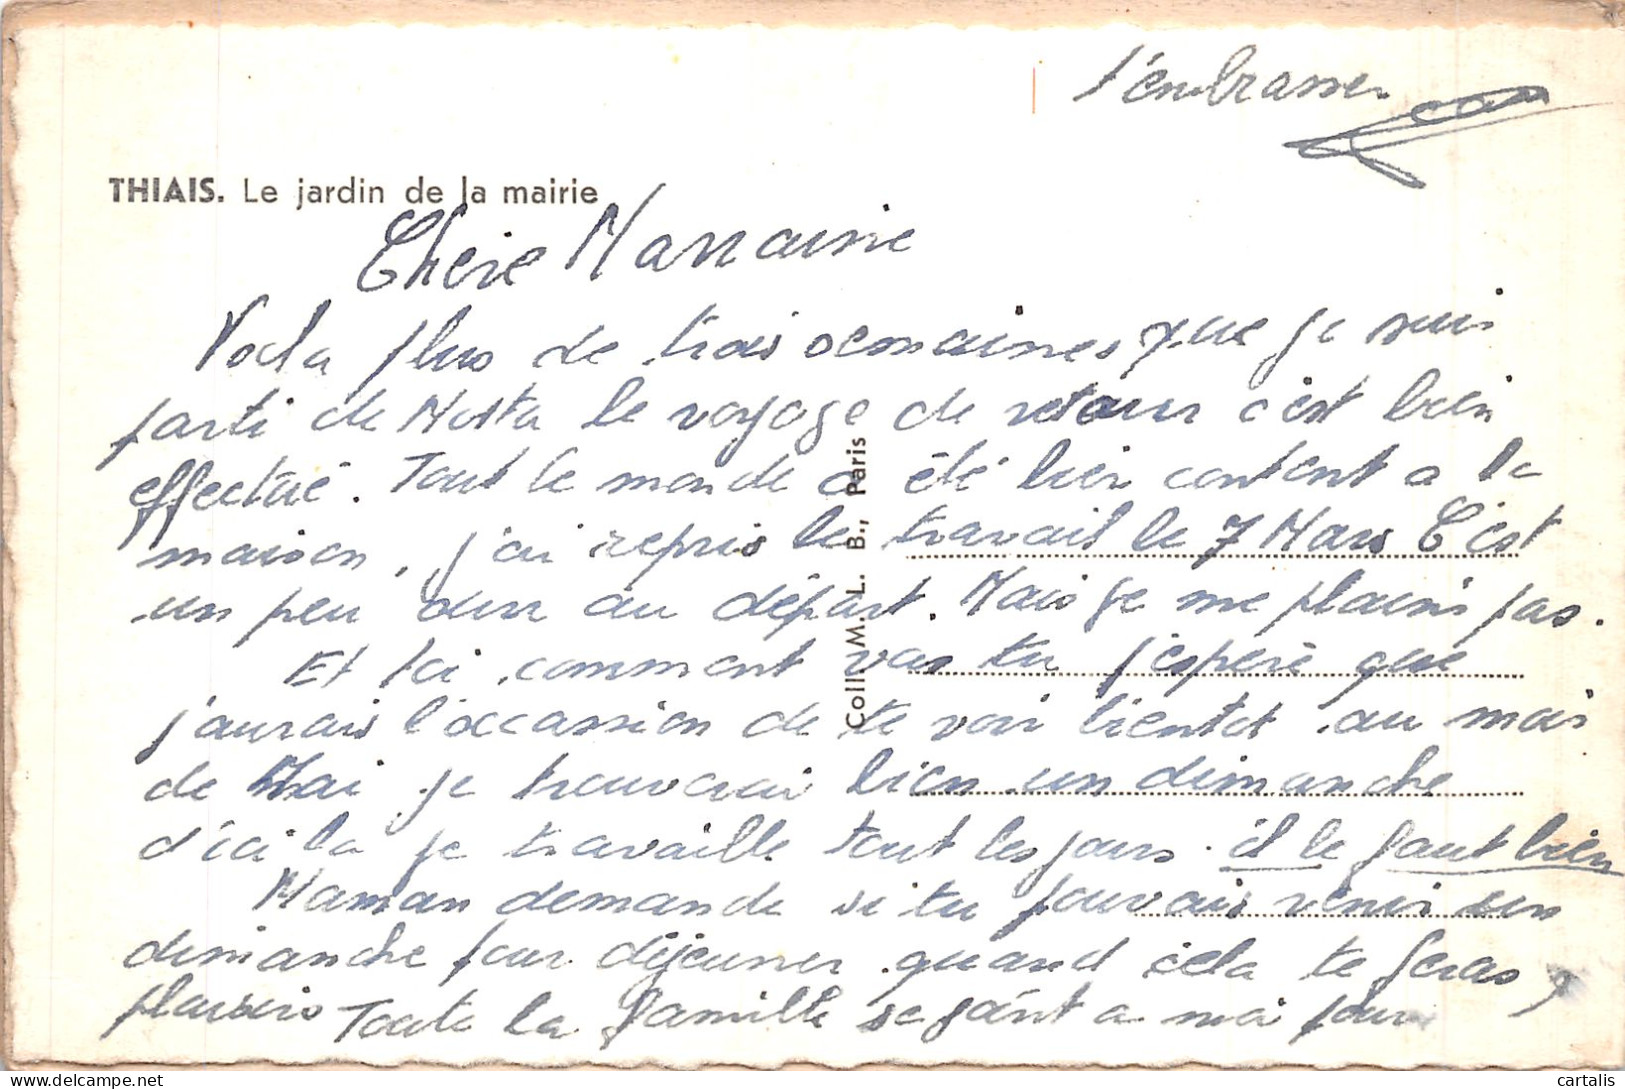 t'embrasser
THIAIS. Le jardin de la mairie
Chère Marraine
Voila plus de trois semaines que je suis
parti de Mosta le voyage de retour c'est bien
effectué. Tout le monde a été bien content a la
maison, j'ai repris le travail le 7 Mars C'est
un peu dur au départ. Mais je me plains pas.
Et toi comment vas tu j'espère que
j'aurais l'occassion de te voir bientot au mois
de Mai je trouverai bien un dimanche
d'ici la je travaille tout les jours. il le faut bien
Maman demande si tu pouvais venir un
dimanche pour déjeuner quand cela te feras
plaisir Toute la famille se joint a moi pour
Coll. M. L. B., Paris
cartalis